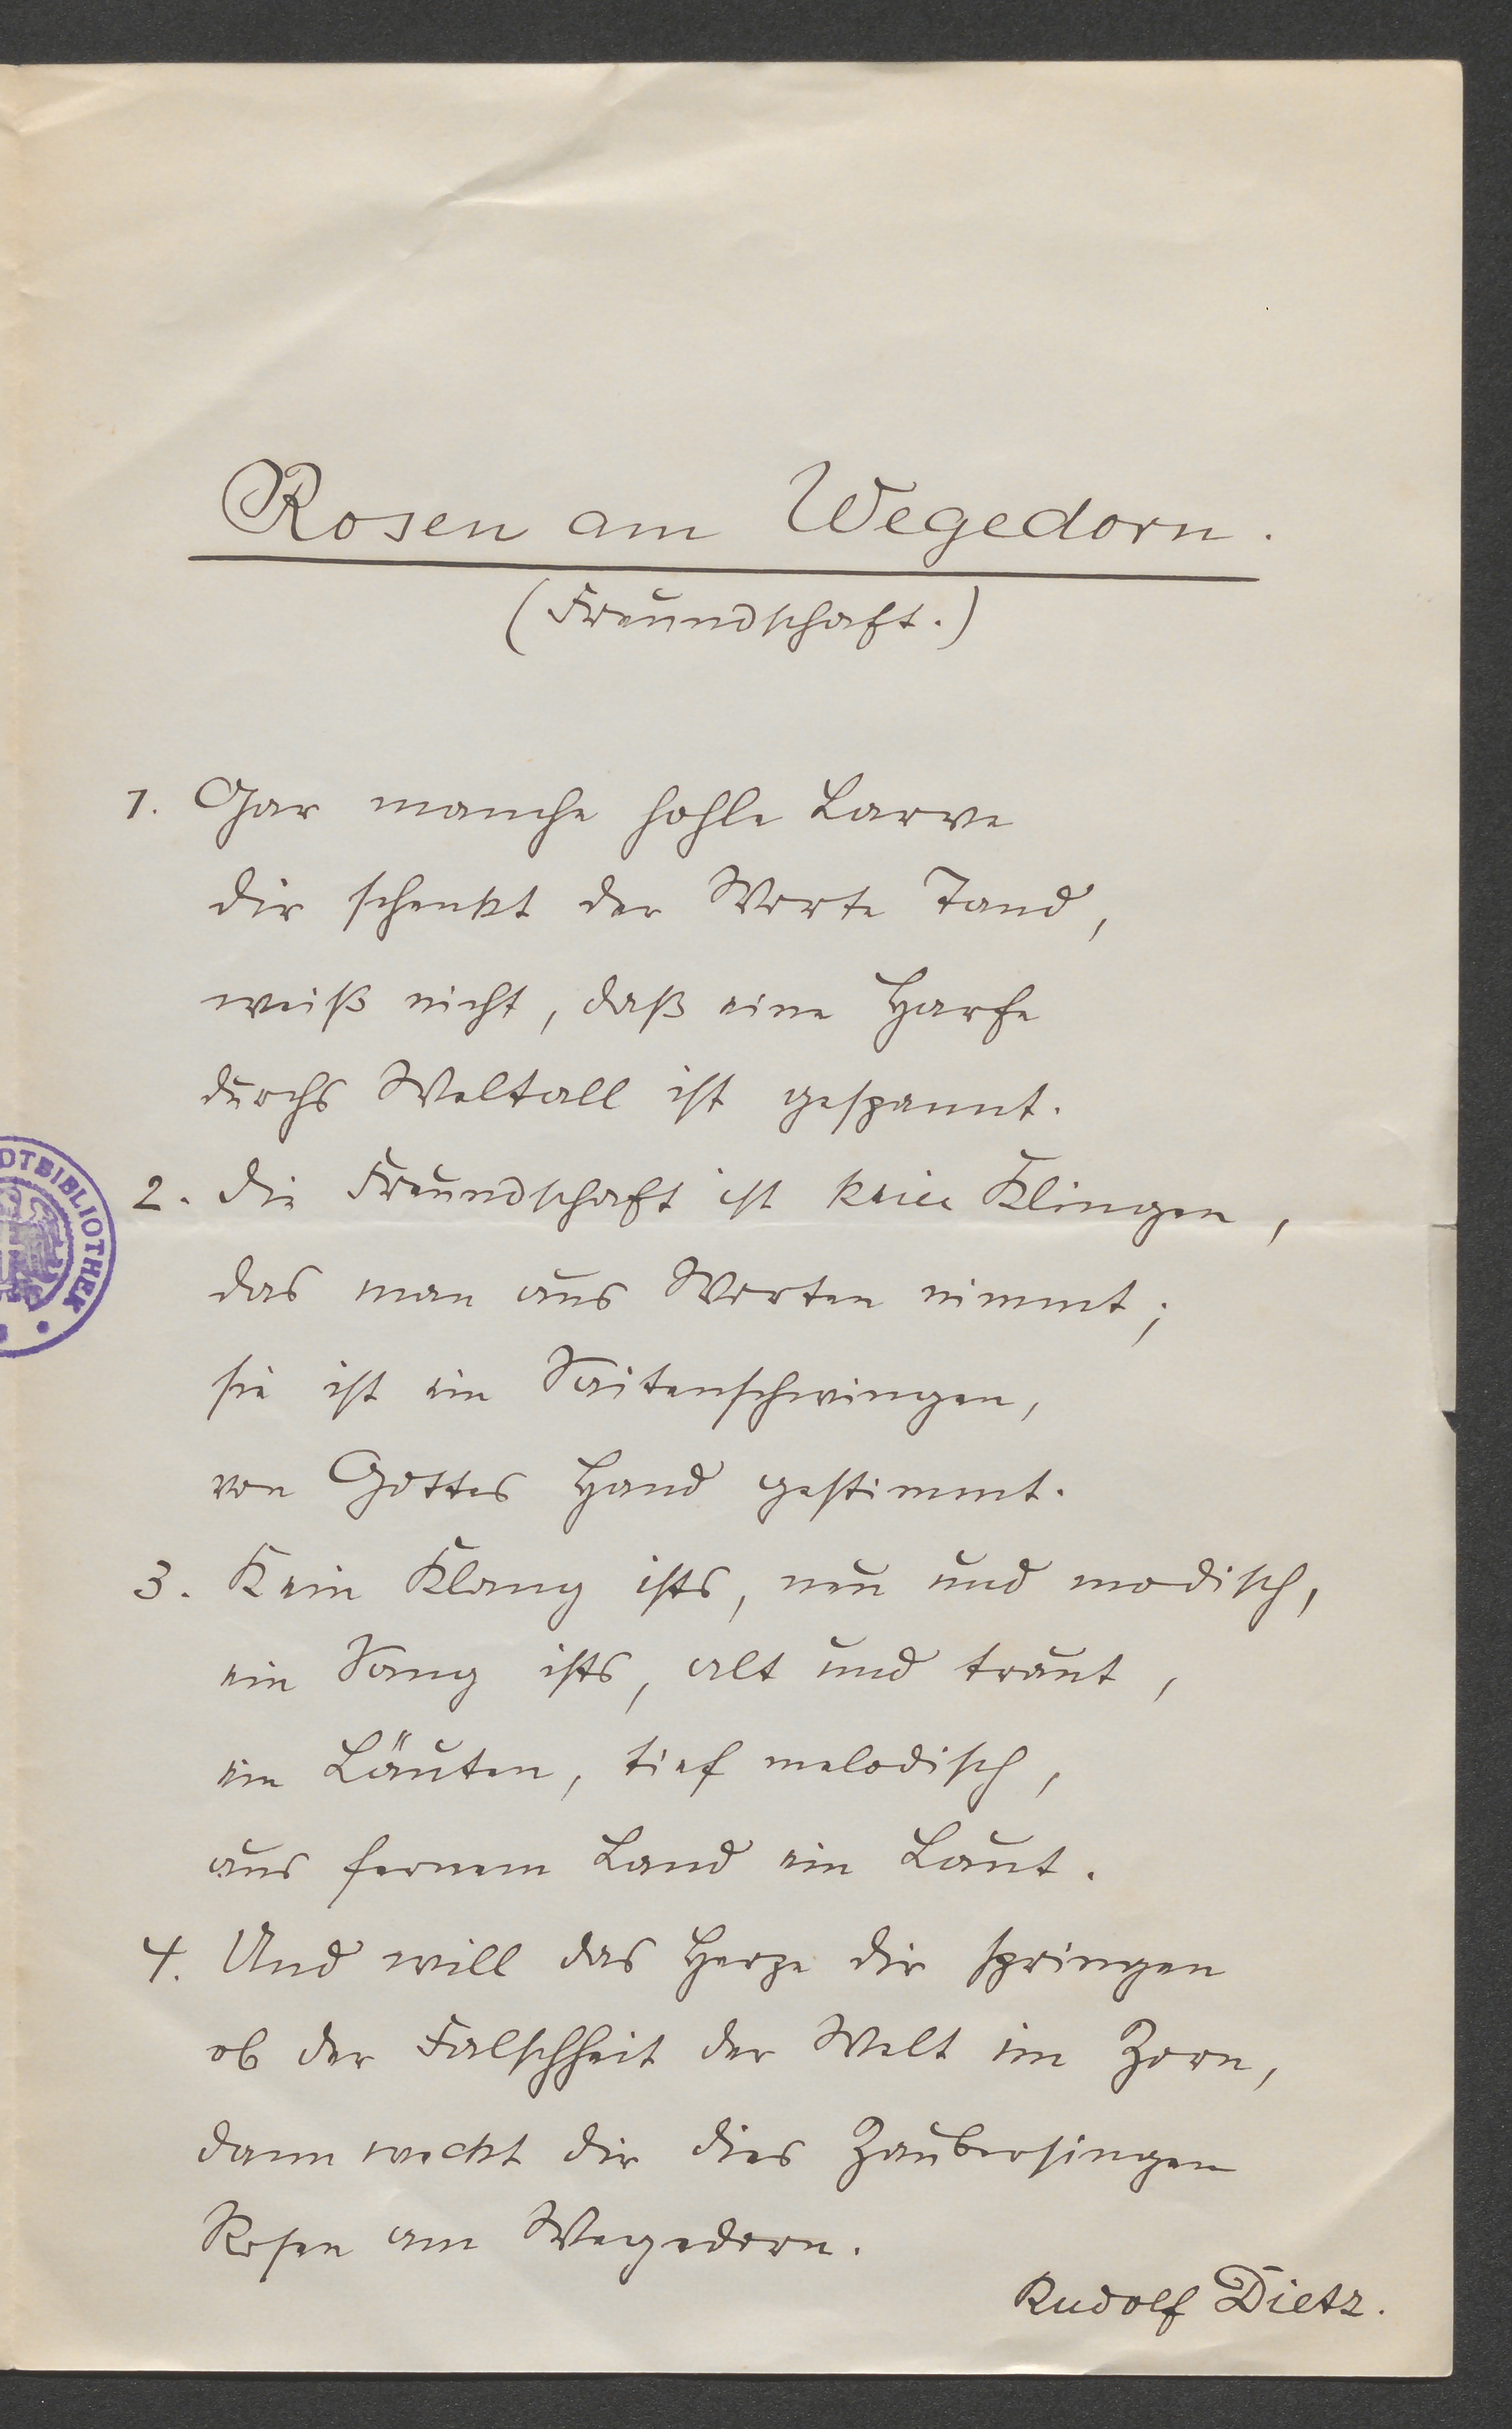 Rosen am Wegedorn.
(Freundschaft.)
1. Gar manche hohle Larve
dir schenkt der Worte Tand,
weiß nicht, daß eine Harfe
durchs Weltall ist gespannt.
DTBIBLIOTHEK
2. Die Freundschaft ist kein Klingen,
das man aus Worten nimmt;
sie ist ein Saitenschwingen,
von Gottes Hand gestimmt.
3. Kein Klang ists, neu und modisch,
ein Sang ists, alt und traut,
ein Läuten, tief melodisch,
aus fernem Land ein Laut.
4. Und will das Herze dir springen
ob der Falschheit der Welt im Zorn,
dann weckt dir dies Zaubersingen
Rosen am Wegedorn.
Rudolf Dietz.